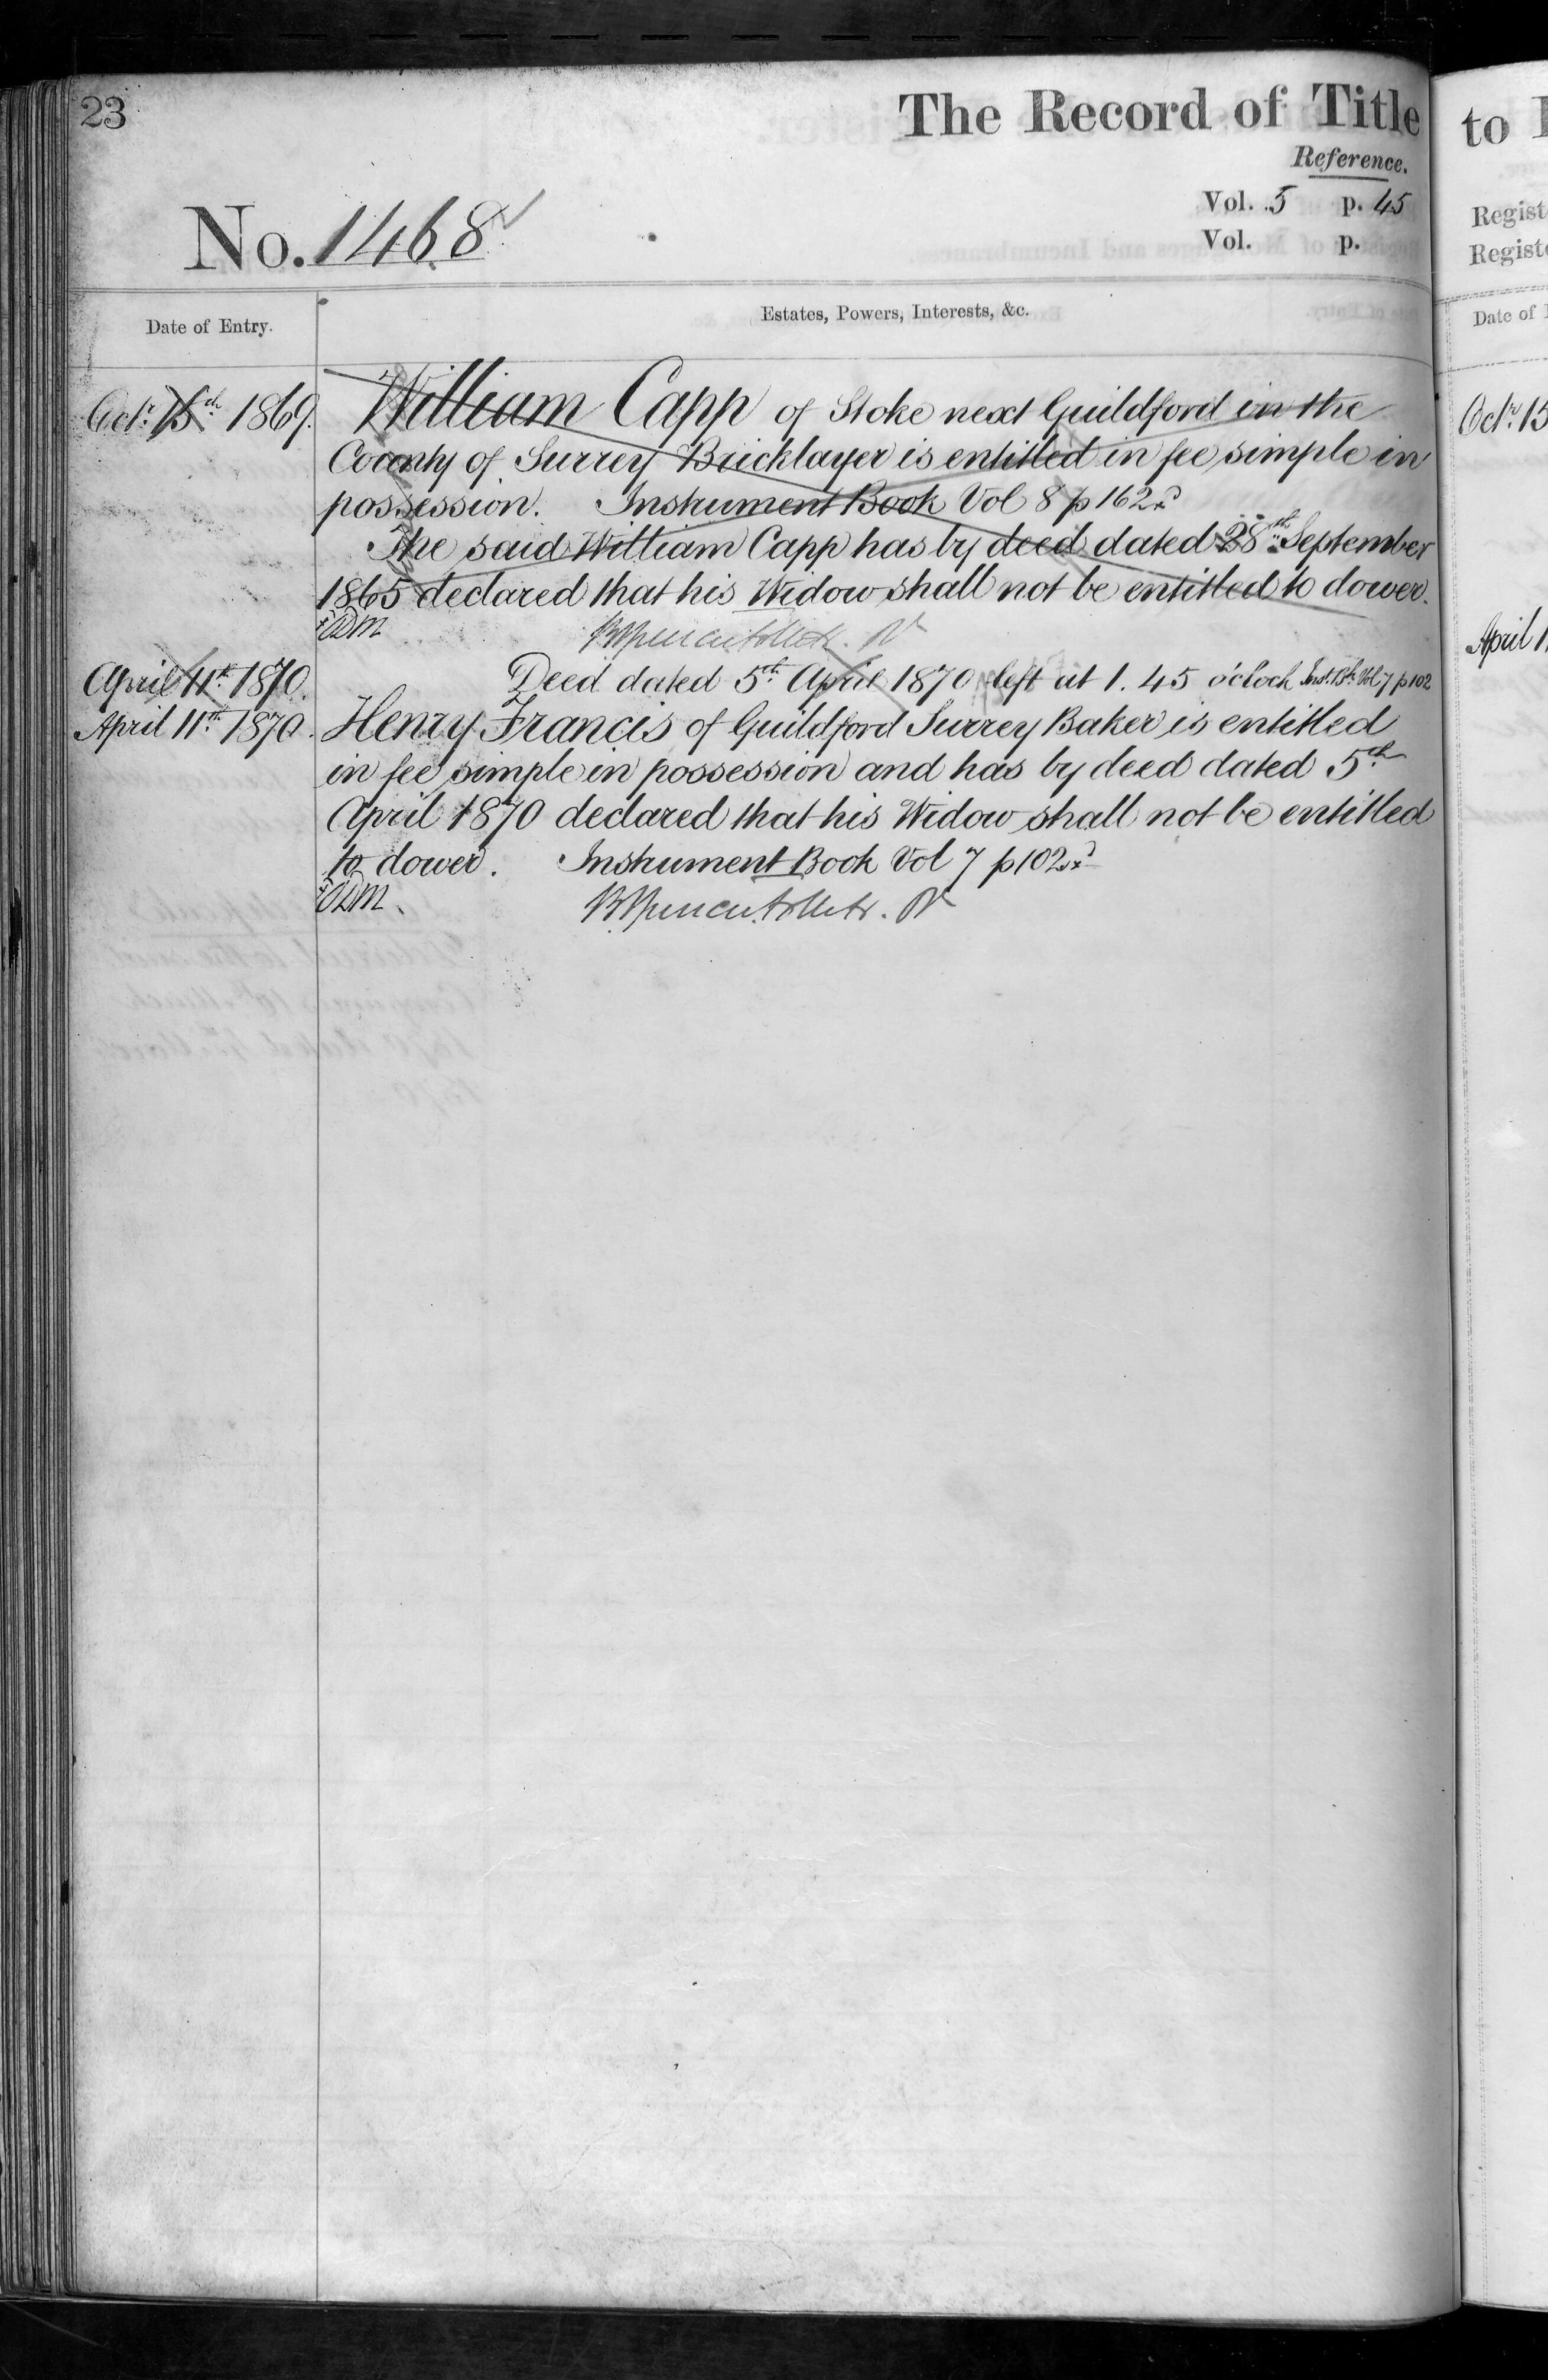 23
The Record of Title
Reference.
Vol. 5 p. 45
Vol. p.
No. 1468
Date of Entry.
Estates, Powers, Interests, &c.
Octr. 15th 1869. William Capp of Stoke next Guildford in the
County of Surrey Bricklayer is entitled in fee simple in
possession. Instrument Book Vol 8 p 162
The said William Capp has by deed dated 28th September
1865 declared that his Widow shall not be entitled to dower.
April 11th 1870. Deed dated 5th April 1870 left at 1.45 o'clock Inst. Bk. Vol 7 p 102
April 11th 1870. Henry Francis of Guildford Surrey Baker is entitled
in fee simple in possession and has by deed dated 5th
April 1870 declared that his Widow shall not be entitled
to dower. Instrument Book Vol 7 p 102
to
Regist
Regist
Date of
Octr. 15
April 1